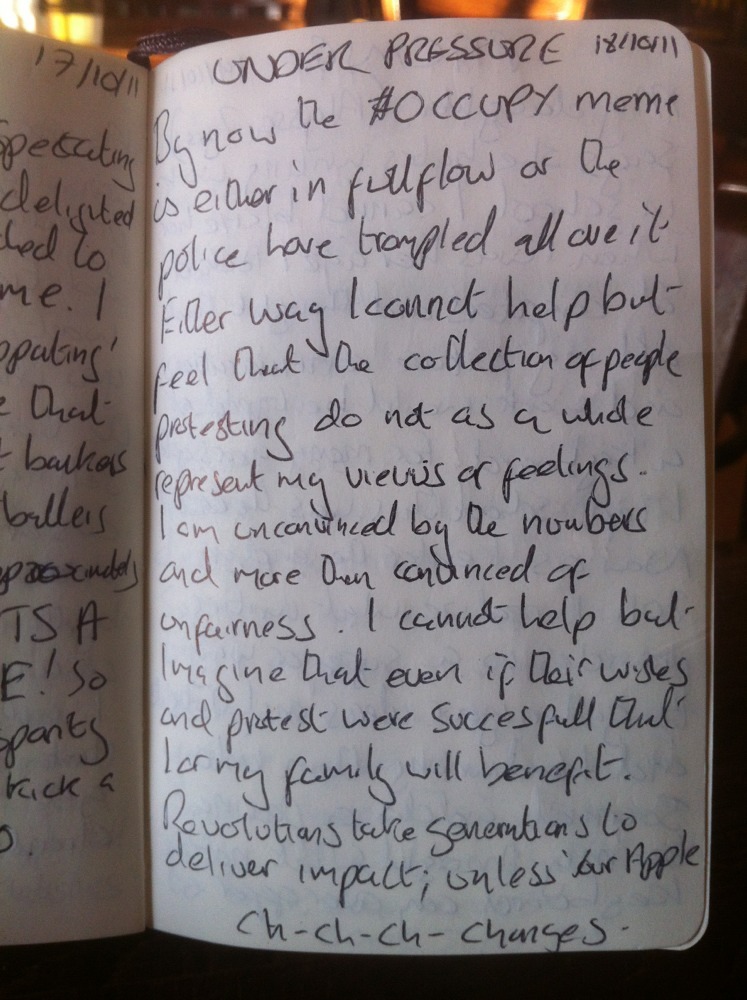 17/10/11
Spectating
delighted
ded to
me. I
pating'
e that
t bankers
ballers
TS A
E! So
pants
kick a
o.
UNDER PRESSURE 18/10/11
By now the #OCCUPY meme
is either in full flow or the
police have trampled all ove it
Either way I cannot help but
feel that the collection of people
protesting do not as a whole
represent my views or feelings.
I am unconvinced by the numbers
and more than convinced of
unfairness. I cannot help but
Imagine that even if their wishes
and protest were succesfull that
I or my family will benefit.
Revolutions take generations to
deliver impact; unless your Apple
Ch-ch-ch-changes.